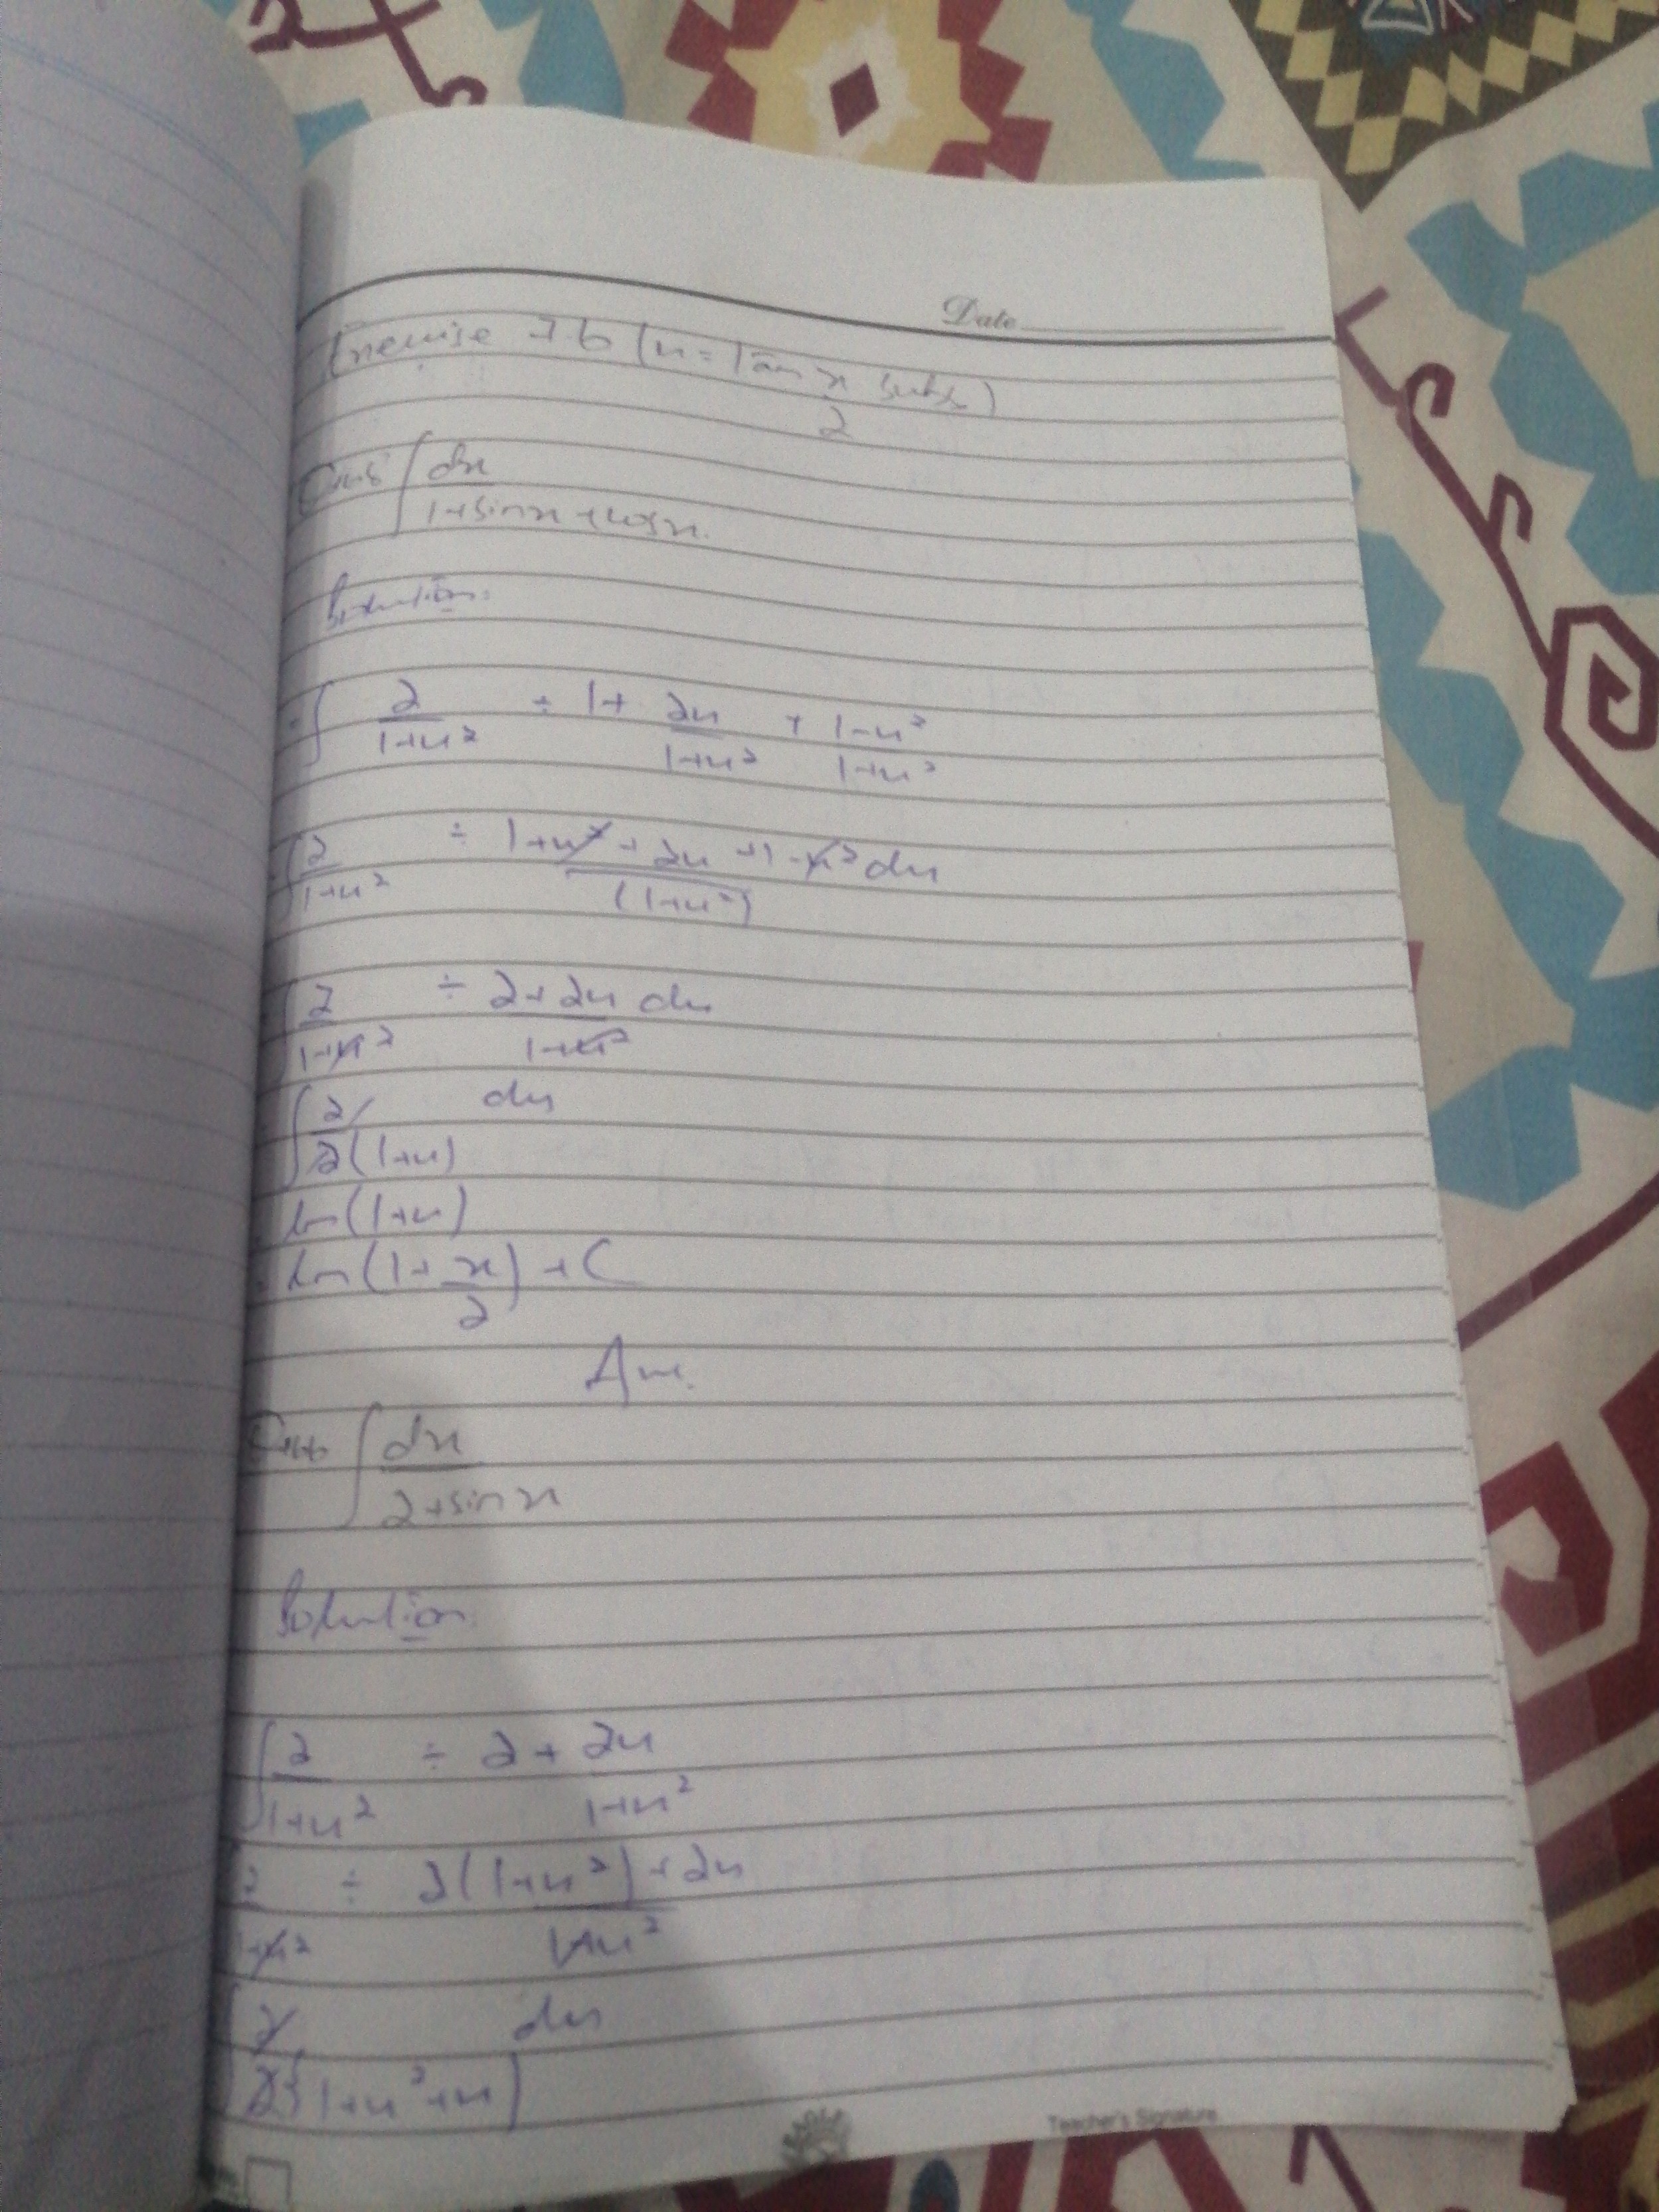 Date
Exercise 7b (u = Tan x/2 subs)
Qno5 ∫ dx/(1+sinx+cosx).
Solution:
= ∫ 2/(1+u²) ÷ 1 + 2u/(1+u²) + (1-u²)/(1+u²)
= ∫ 2/(1+u²) ÷ (1+u²+2u+1-u²)/(1+u²) du
= ∫ 2/(1+u²) ÷ (2+2u)/(1+u²) du
∫ 2/(2(1+u)) du
ln(1+u)
= ln(1+x/2)+C
Ans.
∫ dx/(2+sinx)
Solution
∫ 2/(1+u²) ÷ 2 + 2u/(1+u²)
2/(1+u²) ÷ (2(1+u²)+2u)/(1+u²)
∫ 2/(2{1+u²+u}) du
Teacher's Signature